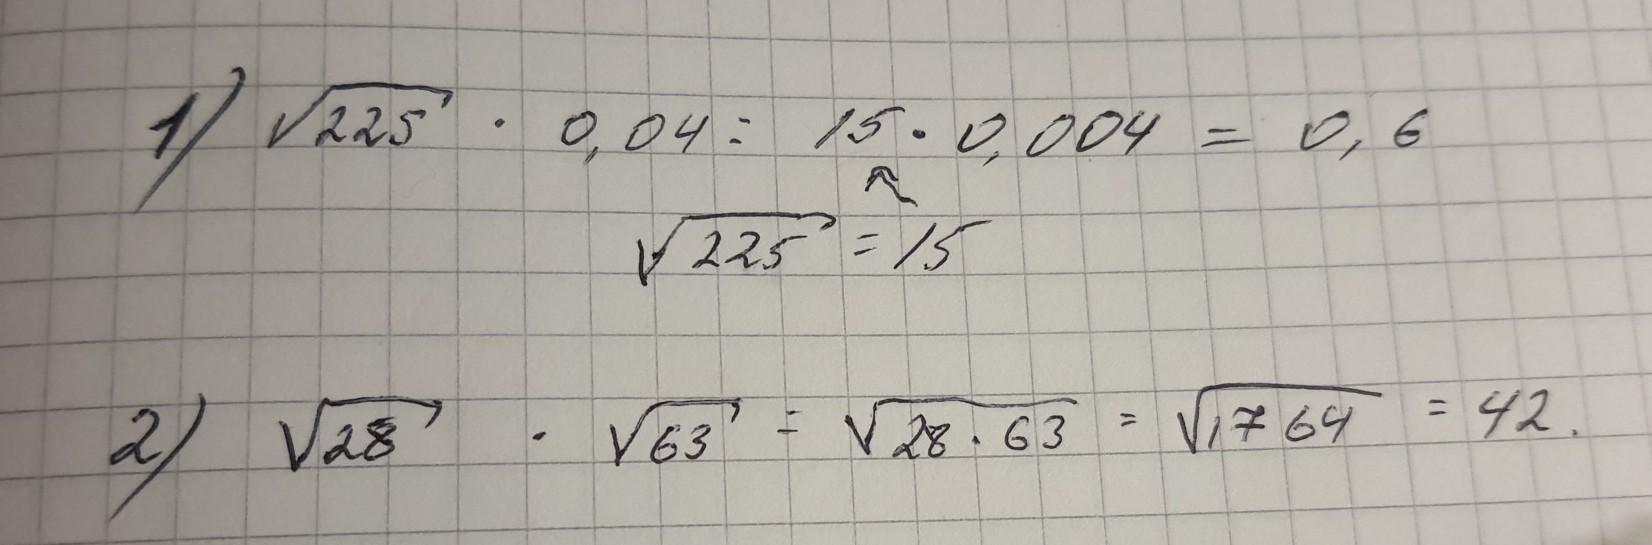 1) √225 · 0,04 = 15 · 0,004 = 0,6
√225 = 15
2) √28 · √63 = √28 · 63 = √1764 = 42.